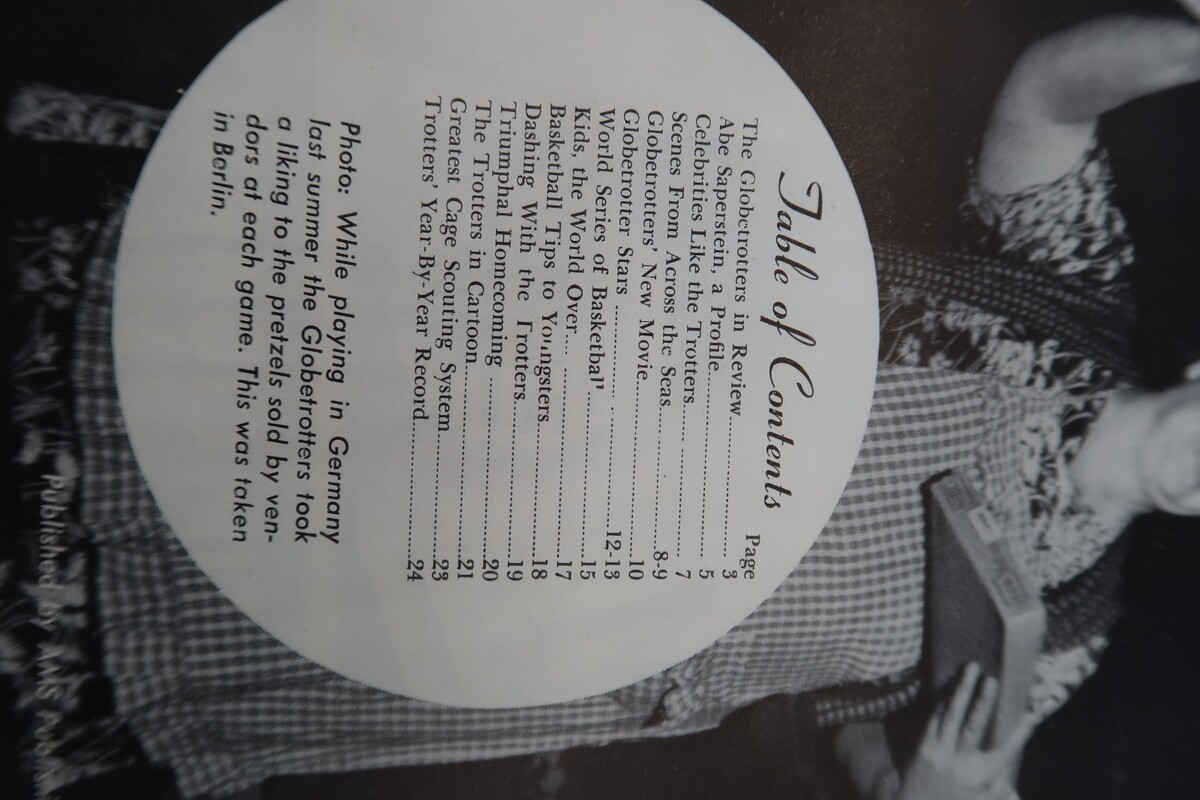 Table of Contents
Page
The Globetrotters in Review........................ 3
Abe Saperstein, a Profile........................ 5
Celebrities Like the Trotters........................ 7
Scenes From Across the Seas........................8-9
Globetrotters' New Movie........................10
Globetrotter Stars ........................12-13
World Series of Basketball........................15
Kids, the World Over........................17
Basketball Tips to Youngsters........................18
Dashing With the Trotters........................19
Triumphal Homecoming ........................20
The Trotters in Cartoon........................21
Greatest Cage Scouting System ........................23
Trotters' Year-By-Year Record........................24
Photo: While playing in Germany
last summer the Globetrotters took
a liking to the pretzels sold by ven-
dors at each game. This was taken
in Borlin.
Published by AMS